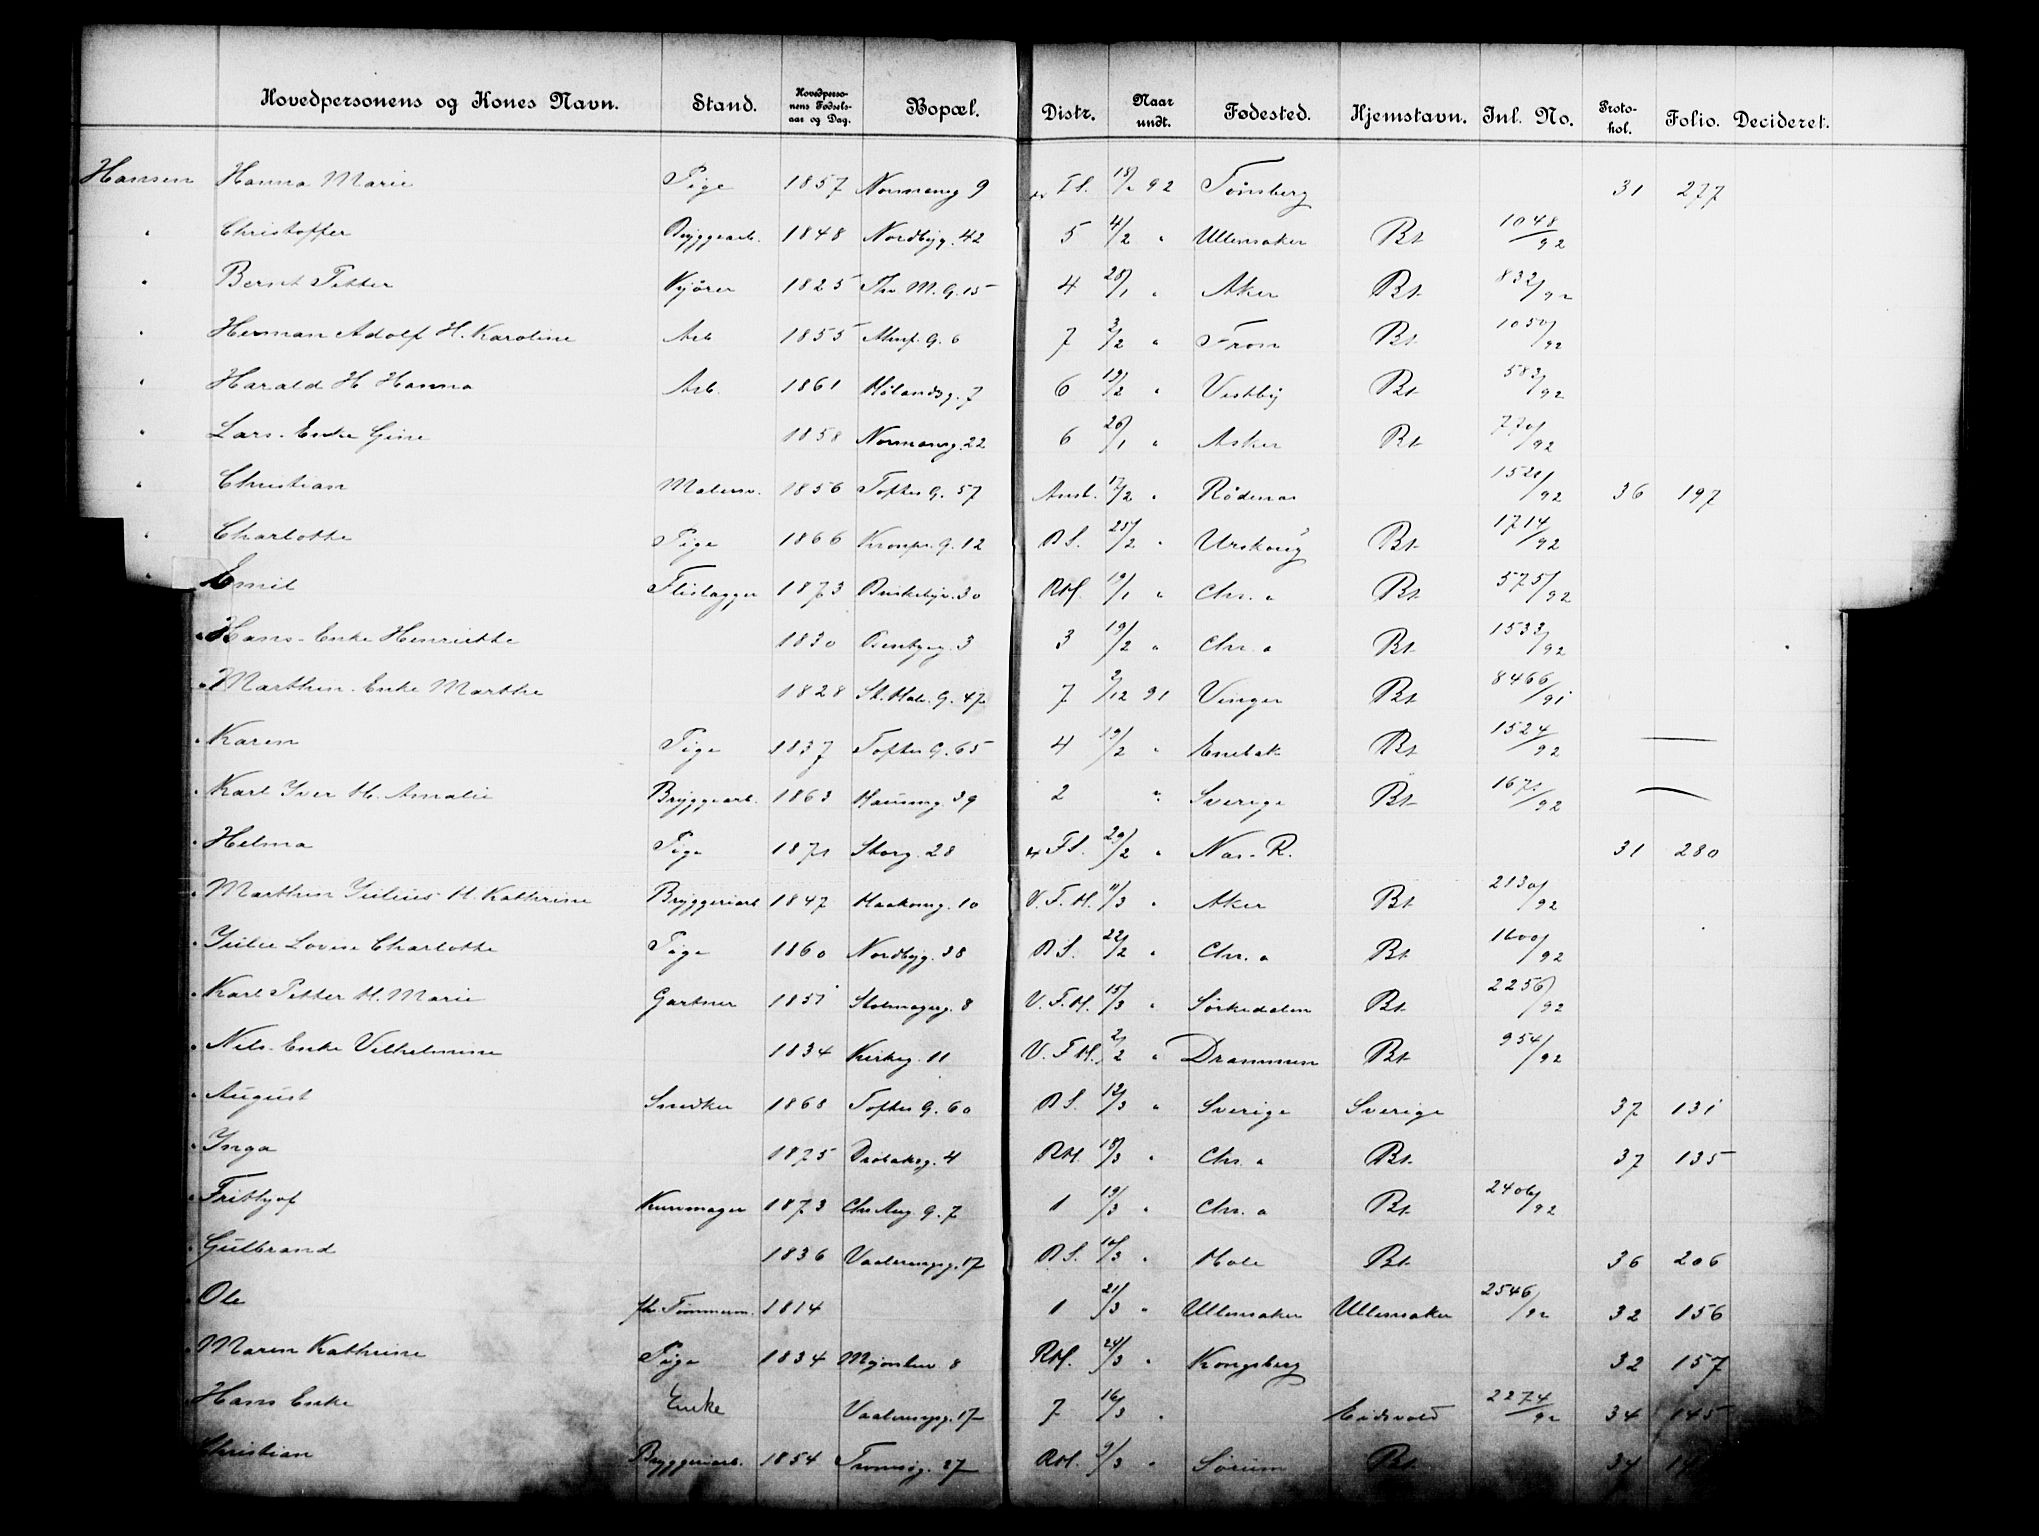 Hovedpersonens og Kones Navn. Stand. Hovedperso-nens Fødsels-aar og Dag. Bopæl. Distr. Naar undt. Fødested. Hjemstavn. Inl. No. Proto-kol. Folio. Decideret.
Hansen Hanna Marie Pige 1857 Normansg 9 18/2 92 Tønsberg 31 277
" Christoffer Bryggearb. 1848 Nordbyg. 42 5 4/2 " Ullensaker Bt 1048/92
" Bernt Petter Kjører 1825 Th. M. G. 15 4 28/1 " Aker Bt 832/92
" Herman Adolf H. Karoline Arb 1855 G. 6 7 2/2 " Fron Bt 1050/92
" Harald H Hanna Arb. 1861 Hølandsg. 7 6 13/2 " Vestby Bt 583/92
" Lars. Enke Gine 1858 Normansg. 22 6 26/1 " Asker Bt 770/92
" Christian Malersv. 1856 Toftes G. 57 Anst. 17/2 " Rødenæs 1521/92 36 197
" Charlotte Pige 1866 Kronpr. G. 12 B S. 25/2 " Urskoug Bt 1714/92
" Emil Flislægger 1873 Briskebyv. 30 RH. 19/1 " Chr. a Bt 575/92
" Hans. Enke Henriette 1830 3 3 19/2 " Chr. a Bt 1533/92
" Marthin. Enke Marthe 1828 St. Halv. G. 47 7 2/12 91 Vinger Bt 8466/91
" Karen Pige 1837 Toftes G. 65 4 19/2 " Enebak Bt 1524/92 —
" Karl Iver H. Amalie Bryggearb. 1863 Hausmg. 39 2 " Sverige Bt 1671/92 —
" Helma Pige 1871 Storg. 28 4 F S. 29/2 " Næs. R. 31 280
" Marthin Julius H. Kathrine Bryggeriarb 1847 Haakong. 10 V. F. H. 11/3 " Aker Bt 2130/92
" Julie Lovise Charlotte Pige 1860 Nordbyg. 38 B S. 22/2 " Chr. a Bt 1600/92
" Karl Petter H. Marie Gartner 1851 Holmagerg. 8 V. F. H. 15/3 " Sørkedalen Bt 2256/92
" Nils. Enke Vilhelmine 1834 Kirkeg. 11 V. F H. 2/2 " Drammen Bt 954/92
" August Snedker 1868 Toftes G. 60 B S. 12/3 " Sverige Sverige 37 131
" Inga 1875 Drøbaksg. 4 RH. 18/3 " Chr. a Bt. 37 135
" Frithjof Kurvmager 1873 Chr Aug. G. 7 1 19/3 " Chr. a Bt. 2406/92
" Gulbrand 1836 Vaalerengsg. 17 B S. 10/3 " Hole Bt 36 206
" Ole fh. Tømmerm. 1814 1 21/3 " Ullensaker Ullensaker 2546/92 32 156
" Maren Kathrine Pige 1834 8 RH. 24/3 " Kongsberg 32 157
Hans Enke Enke Vaalerengsg. 17 7 16/3 " Eidsvold 2274/92 34 145
Christian Bryggeriarb. 1854 Tromsøg. 27 RH. 9/3 " Sørum Bt 34